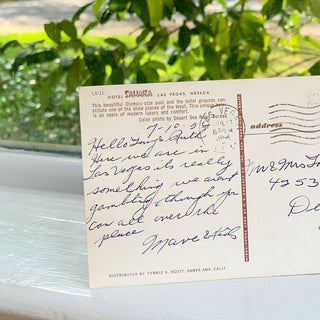 LV-11
HOTEL SAHARA LAS VEGAS, NEVADA
This beautiful Olympic-size pool and the hotel grounds con-
stitute one of the show places of the West. This unique
is an oasis of modern luxury and comfort.
Color photo by Desert Sea News Bureau
7-10-
Hello Tony & Ruth
Here we are in
Las Vegas its really
something we arent
gambling though you
can all over the
place
Marve & Kids
address
Mr & Mrs
4253
De
DISTRIBUTED BY FERRIS H. SCOTT, SANTA ANA, CALIF.